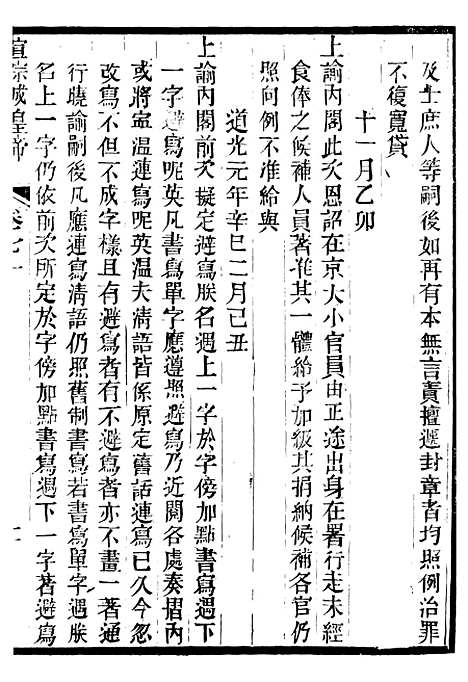 及士庶人等嗣後如再有本無言責擅遞封章者均照例治罪
不復寬貸
十一月乙卯
上諭內閣此次恩詔在京大小官員由正途出身在署行走未經
食俸之候補人員著准其一體給予加級其捐納候補各官仍
照向例不准給與
道光元年辛巳二月己丑
上諭內閣前次擬定避寫朕名遇上一字於字傍加點書寫遇下
一字避寫呢英凡書寫單字應遵照避寫乃近閱各處奏摺內
或將寍温連寫呢英温夫清語皆係原定舊話連寫已久今忽
改寫不但不成字樣且有避寫者有不避寫者亦不畫一著通
行曉諭嗣後凡應連寫清語仍照舊制書寫若書寫單字遇朕
名上一字仍依前次所定於字傍加點書寫遇下一字著避寫
宣宗成皇帝
卷七